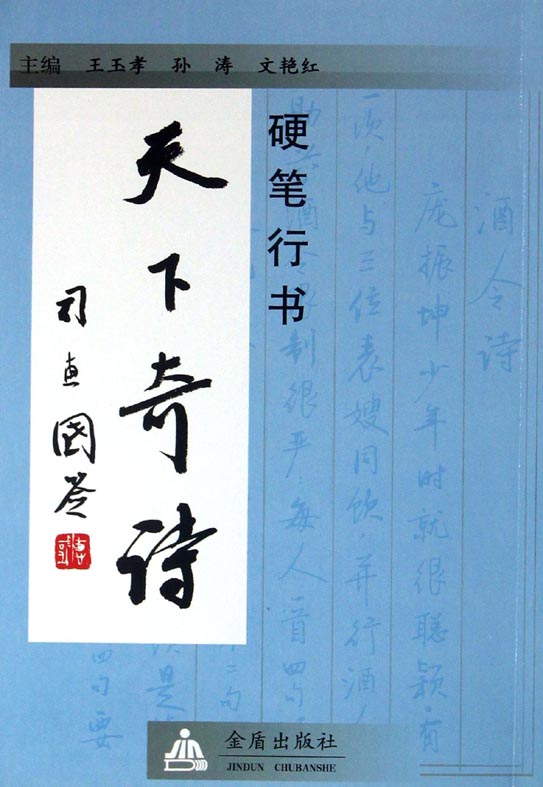 主编 王玉孝 孙 涛 文艳红
硬笔行书
天下奇诗
酒令诗
庞振坤少年时就很聪颖·有
一次·他与三位表嫂同饮·并行酒
制很严·每人一首四句
四句要
金盾出版社
JINDUN CHUBANSHE